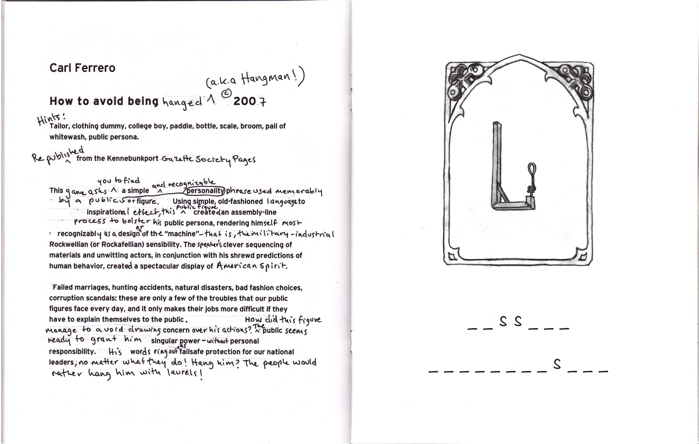 Carl Ferrero
(a.k.a Hangman!)
How to avoid being hanged ^ © 2007
Hints:
Tailor, clothing dummy, college boy, paddle, bottle, scale, broom, pail of
whitewash, public persona.
Republished from the Kennebunkport Gazette Society Pages
you to find and recognizable
This game asks ^ a simple ^ personality phrase used memorably
by a public figure. Using simple, old-fashioned language to
inspirational effect, this public figure created an assembly-line
process to bolster his public persona, rendering himself most
recognizably as a design of the "machine"—that is, the military-industrial
Rockwellian (or Rockafellian) sensibility. The speaker's clever sequencing of
materials and unwitting actors, in conjunction with his shrewd predictions of
human behavior, created a spectacular display of American Spirit.
Failed marriages, hunting accidents, natural disasters, bad fashion choices,
corruption scandals: these are only a few of the troubles that our public
figures face every day, and it only makes their jobs more difficult if they
have to explain themselves to the public. How did this figure
manage to avoid drawing concern over his actions? The public seems
ready to grant him singular power—without personal
responsibility. His words ring out as failsafe protection for our national
leaders, no matter what they do! Hang him? The people would
rather hang him with laurels!
_ _ S S _ _ _
_ _ _ _ _ _ _ _ S _ _ _